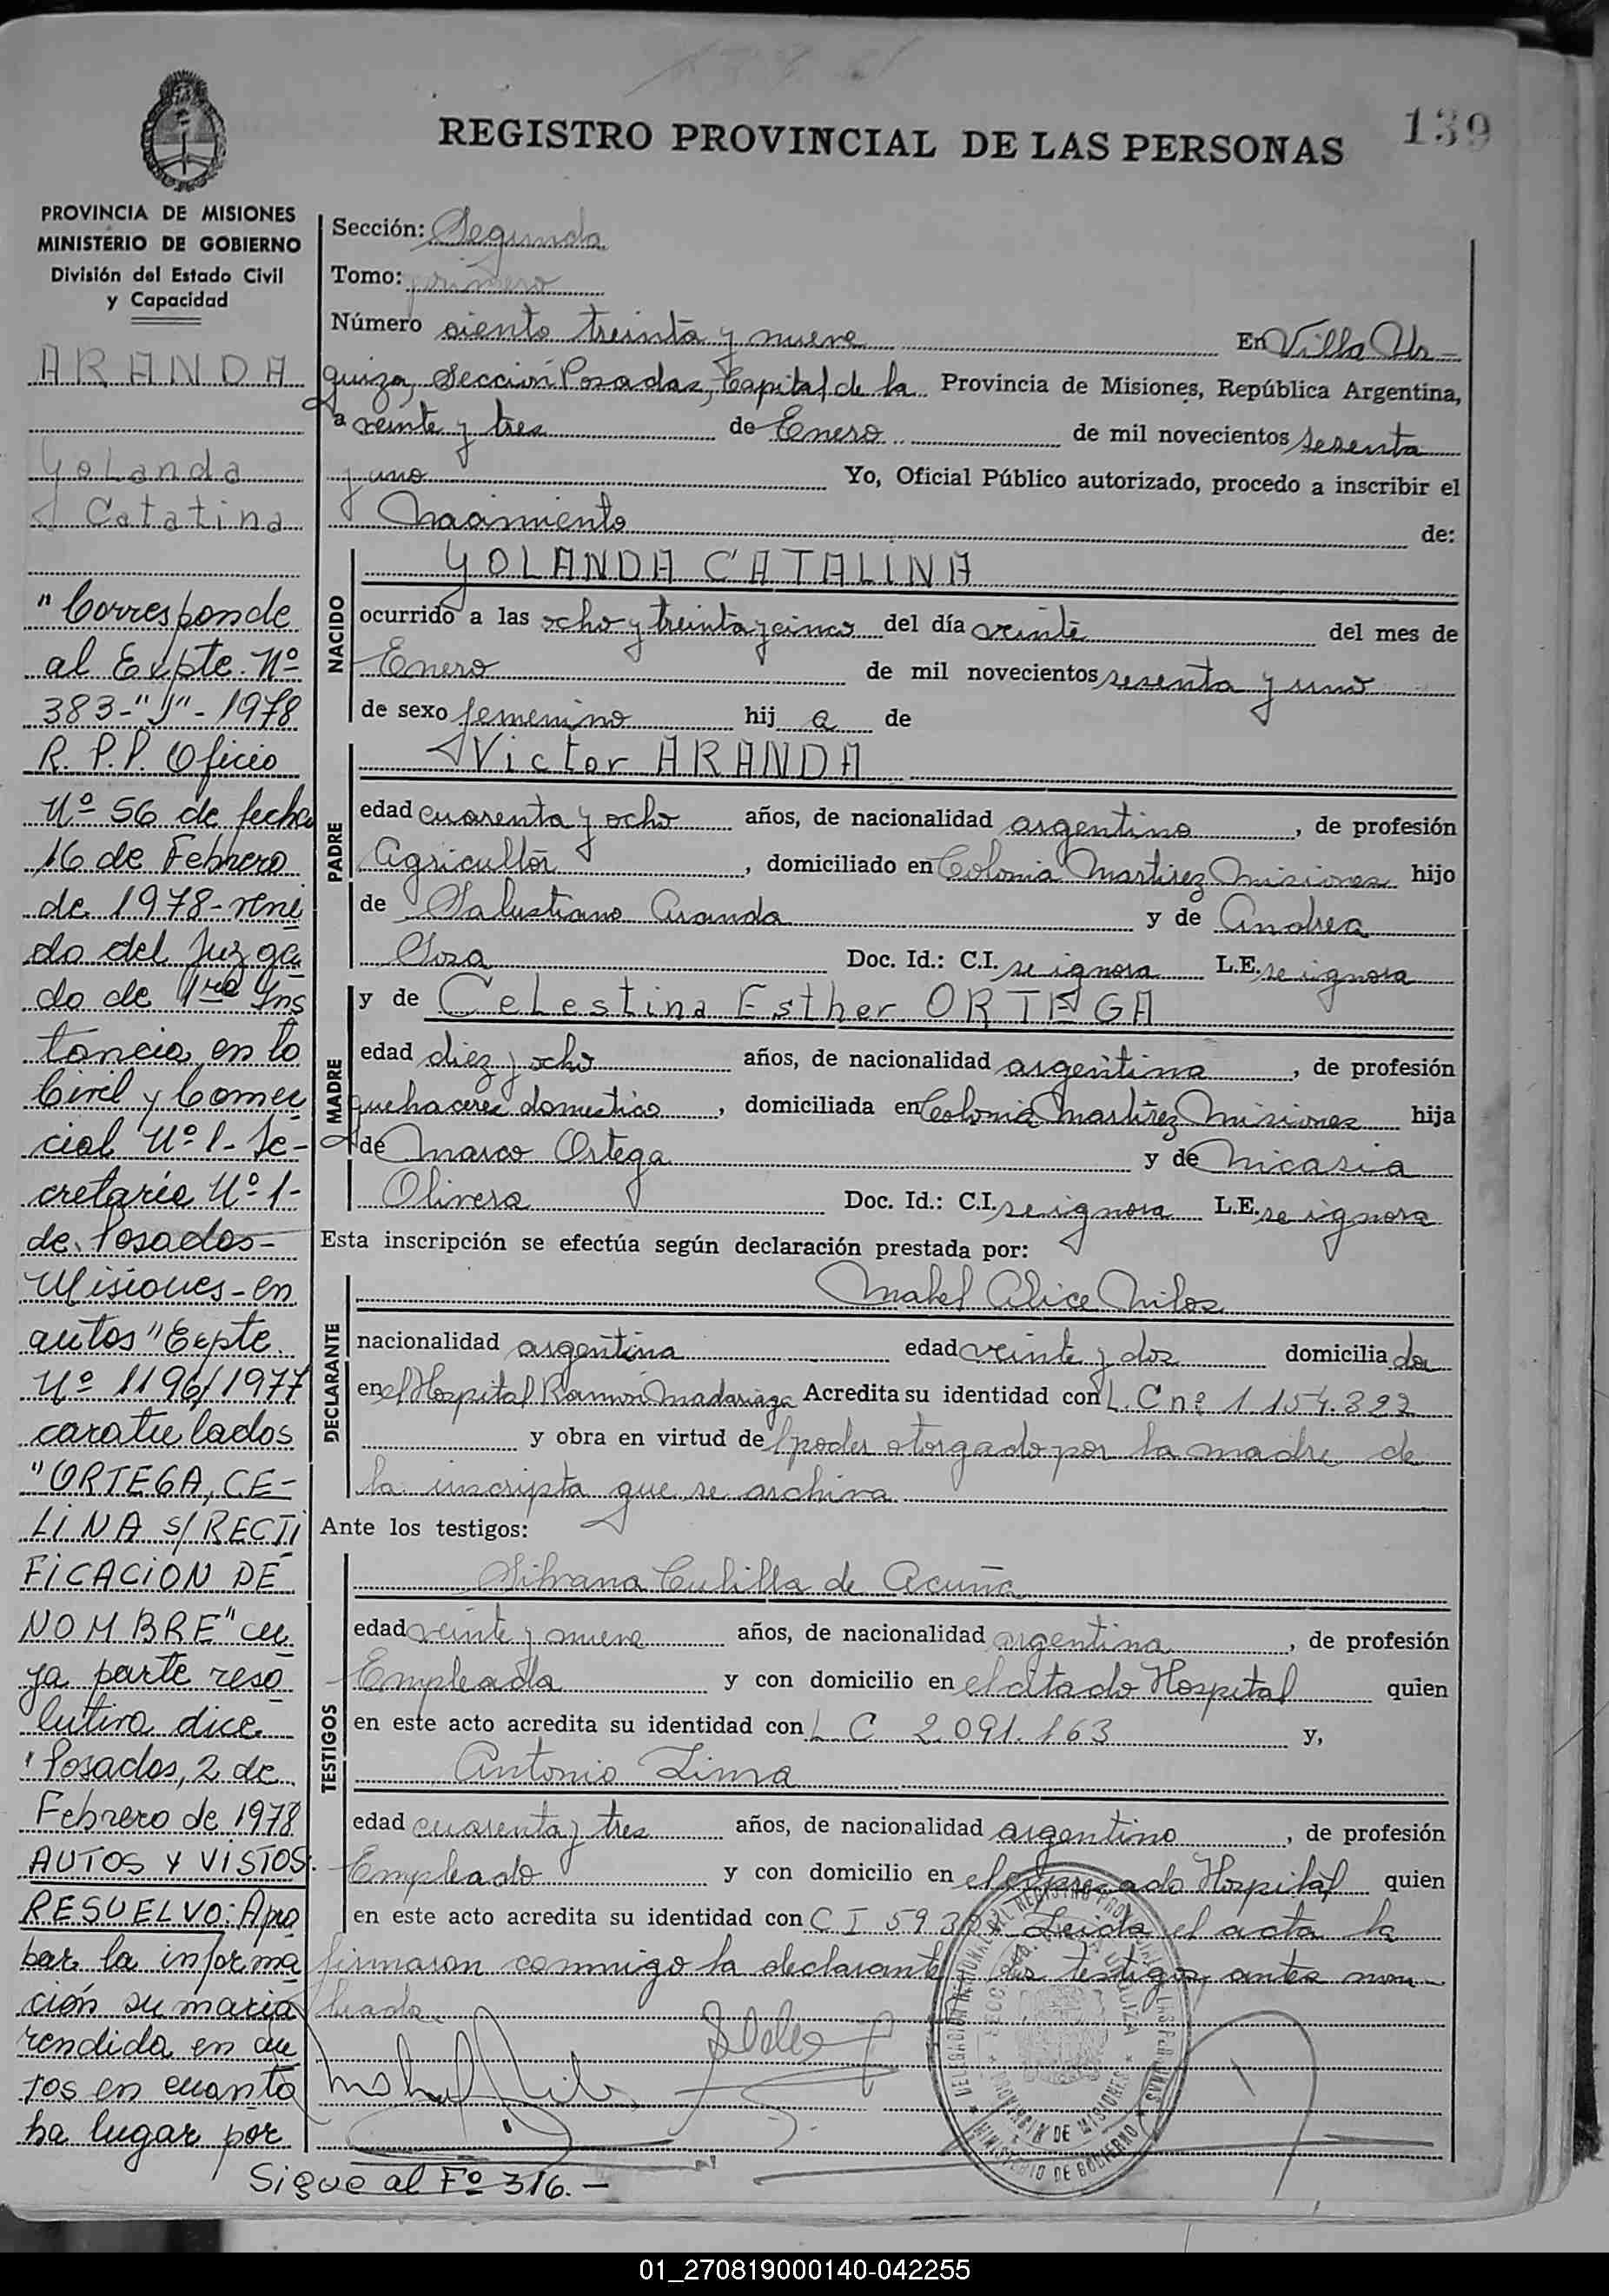 139
REGISTRO PROVINCIAL DE LAS PERSONAS
PROVINCIA DE MISIONES
MINISTERIO DE GOBIERNO
División del Estado Civil
y Capacidad
ARANDA
Yolanda
Catatina
"Corresponde
al Expte. Nº
383-"J"-1978
R. P. P. Oficio
Nº 56 de fecha
16 de Febrero
de 1978-veni
do del Juzga
do de 1ra Ins
tancia en lo
Civil y Comer
cial Nº 1-Se-
cretaría Nº 1-
de Posadas-
Misiones-en
autos "Expte
Nº 1196/1977
caratulados
"ORTEGA, CE-
LINA S/RECTI
FICACION DE
NOMBRE" cu
ya parte reso
lutiva dice
"Posadas, 2 de
Febrero de 1978
AUTOS Y VISTOS:
RESUELVO: Apro
bar la informa
ción sumaria
rendida en au
tos en cuanto
ha lugar por
Sigue al Fº 316.-
Sección: Segunda
Tomo: primero
Número ciento treinta y nueve En Villa Ur-
quiza, Sección Posadas, Capital de la Provincia de Misiones, República Argentina,
a veinte y tres de Enero de mil novecientos sesenta
y uno Yo, Oficial Público autorizado, procedo a inscribir el
Nacimiento de:
NACIDO
YOLANDA CATALINA
ocurrido a las ocho y treinta y cinco del día veinte del mes de
Enero de mil novecientos sesenta y uno
de sexo femenino hij a de
PADRE
Victor ARANDA
edad cuarenta y ocho años, de nacionalidad argentino, de profesión
Agricultor, domiciliado en Colonia Martirez Misiones hijo
de Salustiano Aranda y de Andrea
Sosa Doc. Id.: C.I. se ignora L.E. se ignora
MADRE
y de Celestina Esther ORTEGA
edad diez y ocho años, de nacionalidad argentina, de profesión
quehaceres domesticos, domiciliada en Colonia Martirez Misiones hija
de Marco Ortega y de Nicasia
Olivera Doc. Id.: C.I. se ignora L.E. se ignora
Esta inscripción se efectúa según declaración prestada por:
DECLARANTE
Mabel Alice Milos
nacionalidad argentina edad veinte y dos domicilia da
en el Hospital Ramon Madariaga Acredita su identidad con L. C nº 1.154.322
y obra en virtud del poder otorgado por la madre de
la inscripta que se archiva
Ante los testigos:
TESTIGOS
Silvana Culilla de Acuña
edad veinte y nueve años, de nacionalidad argentina, de profesión
Empleada y con domicilio en el citado Hospital quien
en este acto acredita su identidad con L C 2.091.163 y,
Antonio Lima
edad cuarenta y tres años, de nacionalidad argentino, de profesión
Empleado y con domicilio en el expresado Hospital quien
en este acto acredita su identidad con C I Leida el acta la
firmaron conmigo la declarante los testigos antes nom-
brada
DE MISIONES
MINISTERIO DE GOBIERNO
01_270819000140-042255